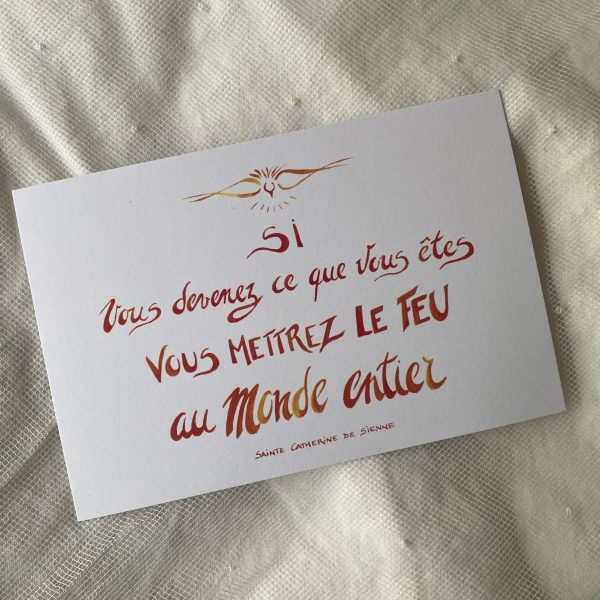 Si
Vous devenez ce que vous êtes
VOUS METTREZ LE FEU
au Monde entier
SAINTE CATHERINE DE SIENNE